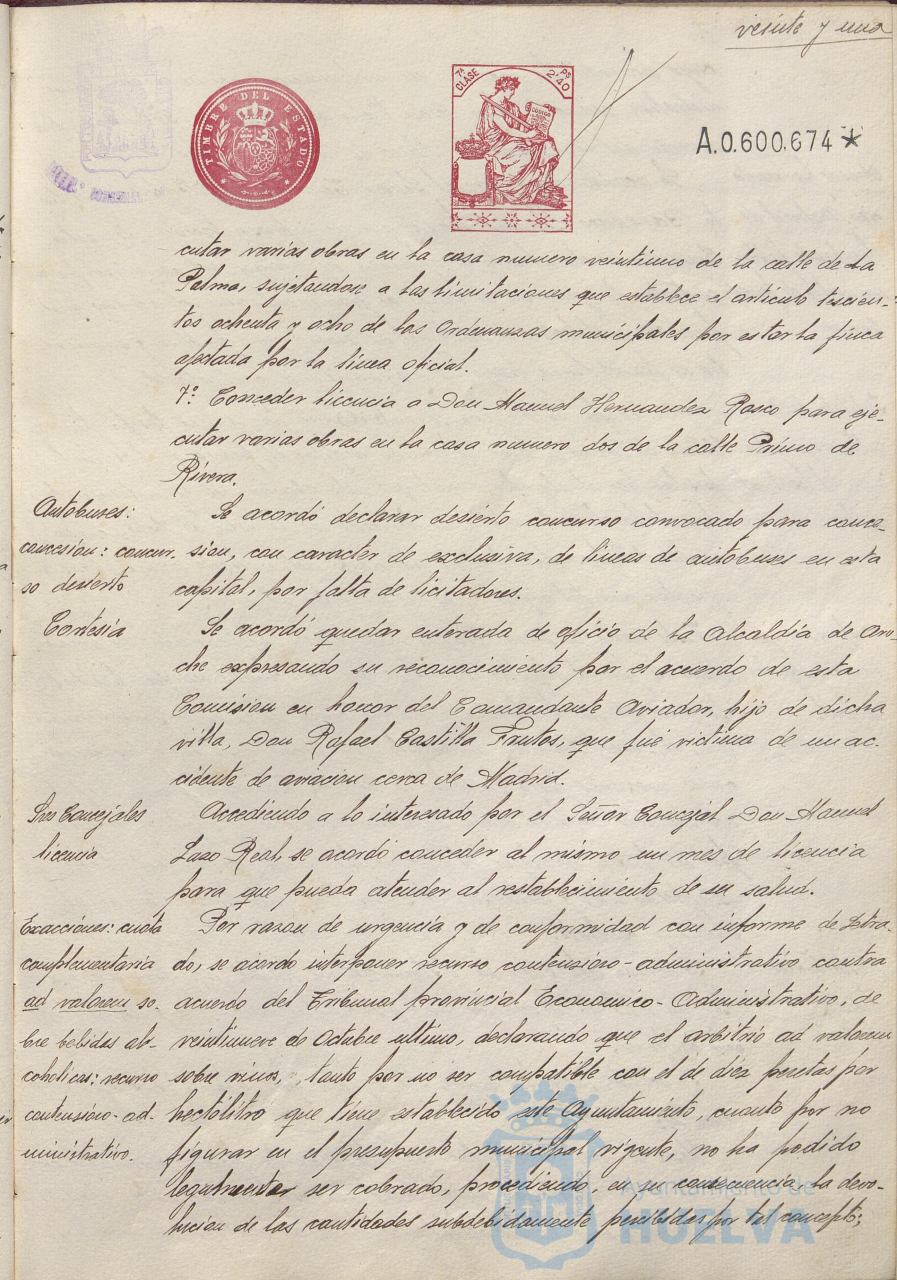 veinte y una
TIMBRE DEL ESTADO
7ª CLASE
Ps 2'40
A.0.600.674 *
cutar varias obras en la casa numero veintiuno de la calle de La
Palma, sujetandose a las limitaciones que establece el artículo tescien-
tos ochenta y ocho de las Ordenanzas municipales por estar la finca
afectada por la linea oficial.
7º Conceder licencia a Don Manuel Hernandez Rasco para eje-
cutar varias obras en la casa numero dos de la calle Primo de
Rivera.
Autobuses:
concesion: concur-
so desierto
Se acordó declarar desierto concurso convocado para conce-
sion, con caracter de exclusiva, de lineas de autobuses en esta
capital, por falta de licitadores.
Cortesia
Se acordó quedar enterada de oficio de la Alcaldia de Aro-
che expresando su reconocimiento por el acuerdo de esta
Comision en honor del Comandante Aviador, hijo de dicha
villa, Don Rafael Castilla Frutos, que fué victima de un ac-
cidente de aviacion cerca de Madrid.
Sres Concejales
licencia
Accediendo a lo interesado por el Señor Concejal Don Manuel
Lazo Real, se acordó conceder al mismo un mes de licencia
para que pueda atender al restablecimiento de su salud.
Exacciones: cuota
complementaria
ad valorem so-
bre bebidas al-
coholicas: recurso
contensioso-ad-
ministrativo.
Por razon de urgencia y de conformidad con informe de Letra-
do, se acordo interponer recurso contensioso-administrativo contra
acuerdo del Tribunal provincial Económico-Administrativo, de
veintinueve de Octubre ultimo, declarando que el arbitrio ad valorem
sobre vinos, tanto por no ser compatible con el de diez pesetas por
hectolitro que tiene establecido este Ayuntamiento, cuanto por no
figurar en el presupuesto municipal vigente, no ha podido
legalmente ser cobrado, procediendo, en su consecuencia, la devo-
lucion de las cantidades subdebidamente percibidas por tal concepto;
Ayuntamiento de
HUELVA